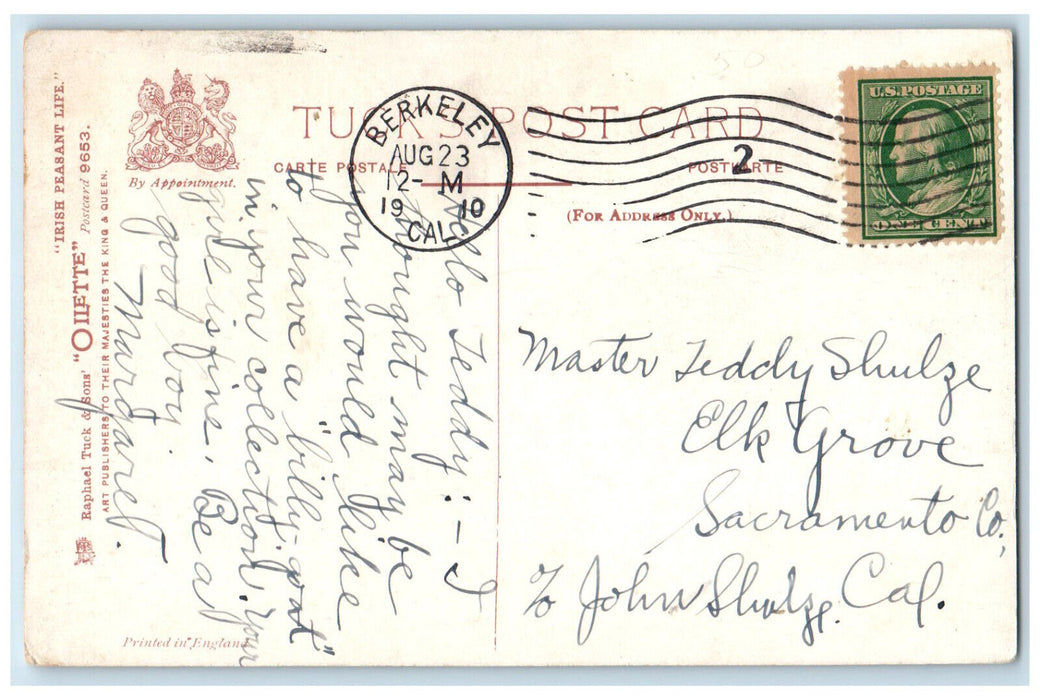 "IRISH PEASANT LIFE."
Raphael Tuck & Sons' "OILETTE" Postcard 9653.
ART PUBLISHERS TO THEIR MAJESTIES THE KING & QUEEN.
By Appointment.
TUCK'S POST CARD
CARTE POSTALE POSTKARTE
(FOR ADDRESS ONLY.)
BERKELEY
AUG 23
12- M
19 10
CAL
2
U.S. POSTAGE
ONE CENT
Hello Teddy:- I
thought may be
you would like
to have a "billy-goat"
in your collection. Your
is fine. Be a
good boy
Margaret.
Master Teddy Shulze
Elk Grove
Sacramento Co.,
c/o John Shulze, Cal.
Printed in England